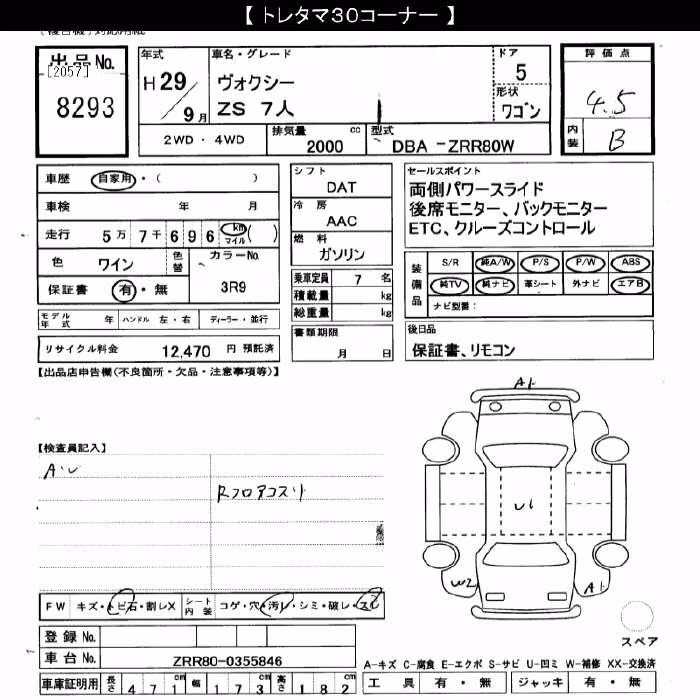 【 トレタマ30コーナー 】
出品No.
[2057]
8293
年式
H29
9月
車名・グレード
ヴォクシー
ZS 7人
ドア
5
形状
ワゴン
評価点
4.5
内装
B
2WD・4WD
排気量
2000 cc
型式
DBA -ZRR80W
車歴 自家用・( )
車検 年 月
走行 5万7千696 km マイル ( )
色 ワイン 色替 カラーNo.
3R9
保証書 有・無
モデル年式 年 ハンドル 左・右 ディーラー・並行
リサイクル料金 12,470 円 預託済
シフト
DAT
冷房
AAC
燃料
ガソリン
乗車定員 7 名
積載量 kg
総重量 kg
書類期限
月 日
セールスポイント
両側パワースライド
後席モニター、バックモニター
ETC、クルーズコントロール
装備品
S/R 純A/W P/S P/W ABS
純TV 純ナビ 革シート 外ナビ エアB
ナビ型番:
後日品
保証書、リモコン
【出品店申告欄(不良箇所・欠品・注意事項等)】
【検査員記入】
A・U
Rフロアコスリ
A1
U1
W2
A1
スペア
FW キズ・トビ石・割レX シート内装 コゲ・穴・汚レ・シミ・破レ・スレ
登録No.
車台No. ZRR80-0355846
車庫証明用 長さ 471cm 幅 173cm 高さ 182cm
A-キズ C-腐食 E-エクボ S-サビ U-凹ミ W-補修 XX-交換済
工具 有・無 ジャッキ 有・無